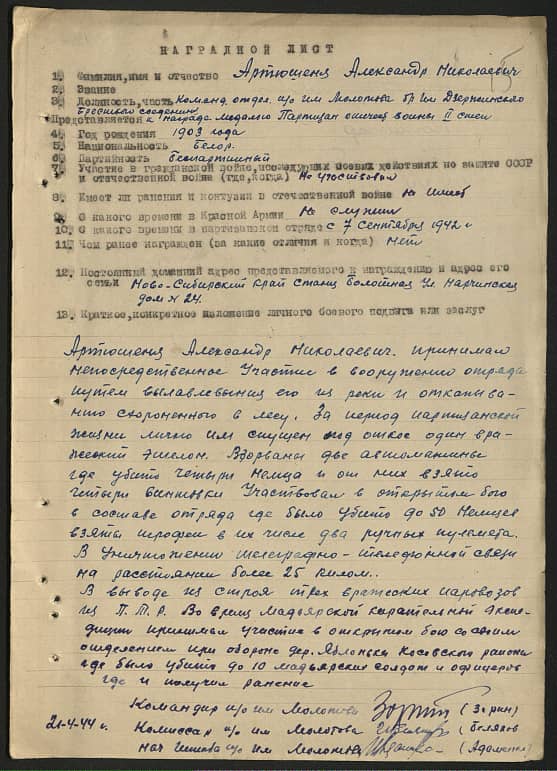 НАГРАДНОЙ ЛИСТ
1. Фамилия, имя и отчество Артюшеня Александр Николаевич
2. Звание
3. Должность, часть Команд. отдел. п/о им Молотова бр. Им Дзержинского
Брестского соединения
Представляется к награде медалью Партизан отечеств войны II степ
4. Год рождения 1903 года
5. Национальность Белор.
6. Партийность беспартийный
7. Участие в гражданской войне, последующих боевых действиях по защите СССР
и отечественной войне (где, когда) Не участвовал
8. Имеет ли ранения и контузии в отечественной войне Не имеет
9. С какого времени в Красной Армии Не служил
10. С какого времени в партизанском отряде с 7 сентября 1942 г
11. Чем ранее награжден (за какие отличия и когда) Нет
12. Постоянный домашний адрес представляемого к награждению и адрес его
семьи Ново-Сибирский Край станц Болотная ул Нарчинская
дом № 24.
13. Краткое, конкретное изложение личного боевого подвига или заслуг
Артюшеня Александр Николаевич. принимал
непосредственное участие в вооружении отряда
путем вылавлевыния его из реки и откапыва-
нию схороненного в лесу. За период партизанской
жизни лично им спущен под откос один вра-
жеский эшелон. Взорваны две автомашины
где убито четыри Немца и от них взято
четыри винтовки Участвовал в открытом бою
в составе отряда где было убито до 50 Немцев
взяты трофеи в их числе два ручных пулемета.
В Уничтожении телеграфно-телефонной связи
на расстоянии более 25 килом..
В выводе из строя трех вражеских паровозов
из П.Т.Р. Во время мадьярской карательной экспе-
диции принимал участие в открытом бою со своим
отделением при обороне дер. Яблонька Косовский района
где было убито до 10 мадьярских солдат и офицеров
где и получил ранение
Командир п/о им Молотова (Зорин)
21-4-44 г. Комиссар п/о им Молотова (Беляков
нач штаба п/о им Молотова